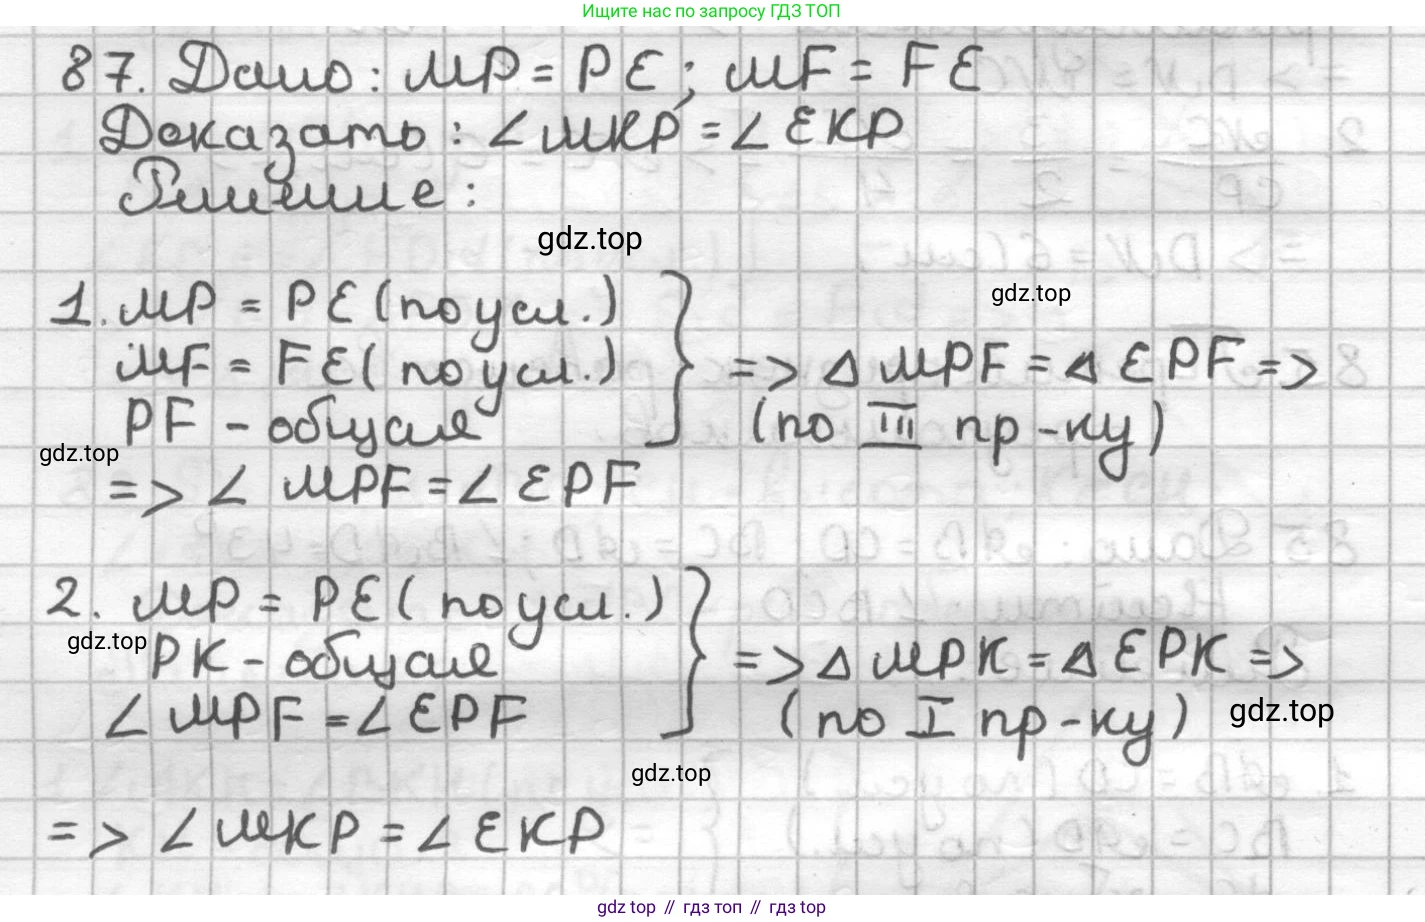 Ищите нас по запросу ГДЗ ТОП
87. Дано: MP = PE; MF = FE
Доказать: ∠MKP = ∠EKP
Решение:
gdz.top
1. MP = PE (по усл.)
gdz.top
MF = FE (по усл.) => △ MPF = △ EPF =>
PF - общая (по III пр-ку)
gdz.top
=> ∠ MPF = ∠ EPF
2. MP = PE (по усл.)
gdz.top
PK - общая => △ MPK = △ EPK =>
∠ MPF = ∠ EPF (по I пр-ку)
gdz.top
gdz.top
=> ∠ MKP = ∠ EKP
gdz top // гдз топ // gdz top